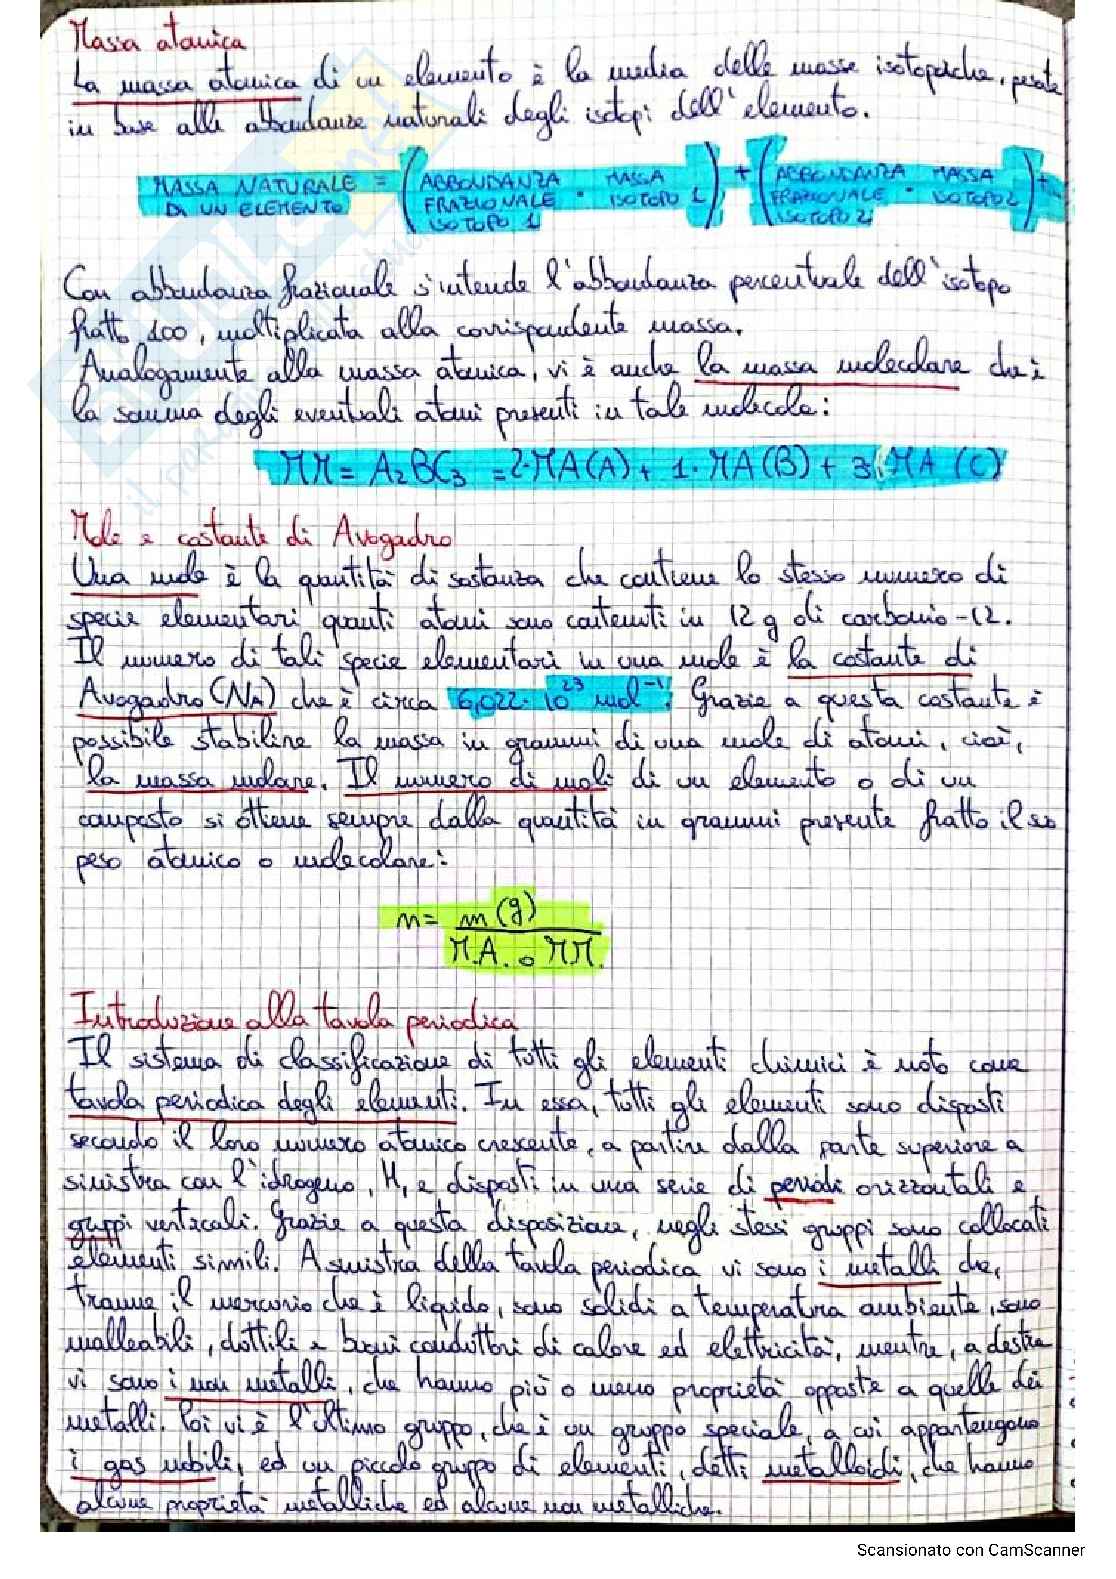 Massa atomica
La massa atomica di un elemento è la media delle masse isotopiche, pesate
in base alle abbondanze naturali degli isotopi dell'elemento.
MASSA NATURALE DI UN ELEMENTO = (ABBONDANZA FRAZIONALE ISOTOPO 1 · MASSA ISOTOPO 1) + (ABBONDANZA FRAZIONALE ISOTOPO 2 · MASSA ISOTOPO 2) +
Con abbondanza frazionale s'intende l'abbondanza percentuale dell'isotopo
fratto 100, moltiplicata alla corrispondente massa.
Analogamente alla massa atomica, vi è anche la massa molecolare che è
la somma degli eventuali atomi presenti in tale molecola:
MM = A₂BC₃ = 2·MA(A) + 1·MA(B) + 3·MA(C)
Mole e costante di Avogadro
Una mole è la quantità di sostanza che contiene lo stesso numero di
specie elementari quanti atomi sono contenuti in 12 g di carbonio-12.
Il numero di tali specie elementari in una mole è la costante di
Avogadro (Nₐ) che è circa 6,022·10²³ mol⁻¹. Grazie a questa costante è
possibile stabilire la massa in grammi di una mole di atomi, cioè,
la massa molare. Il numero di moli di un elemento o di un
composto si ottiene sempre dalla quantità in grammi presente fratto il suo
peso atomico o molecolare:
n = m(g) / M.A. o MM.
Introduzione alla tavola periodica
Il sistema di classificazione di tutti gli elementi chimici è noto come
tavola periodica degli elementi. In essa, tutti gli elementi sono disposti
secondo il loro numero atomico crescente, a partire dalla parte superiore a
sinistra con l'idrogeno, H, e disposti in una serie di periodi orizzontali e
gruppi verticali. Grazie a questa disposizione, negli stessi gruppi sono collocati
elementi simili. A sinistra della tavola periodica vi sono i metalli che,
tranne il mercurio che è liquido, sono solidi a temperatura ambiente, sono
malleabili, duttili e buoni conduttori di calore ed elettricità, mentre, a destra
vi sono i non metalli, che hanno più o meno proprietà opposte a quelle dei
metalli. Poi vi è l'ultimo gruppo, che è un gruppo speciale, a cui appartengono
i gas nobili, ed un piccolo gruppo di elementi, detti metalloidi, che hanno
alcune proprietà metalliche ed alcune non metalliche.
Scansionato con CamScanner